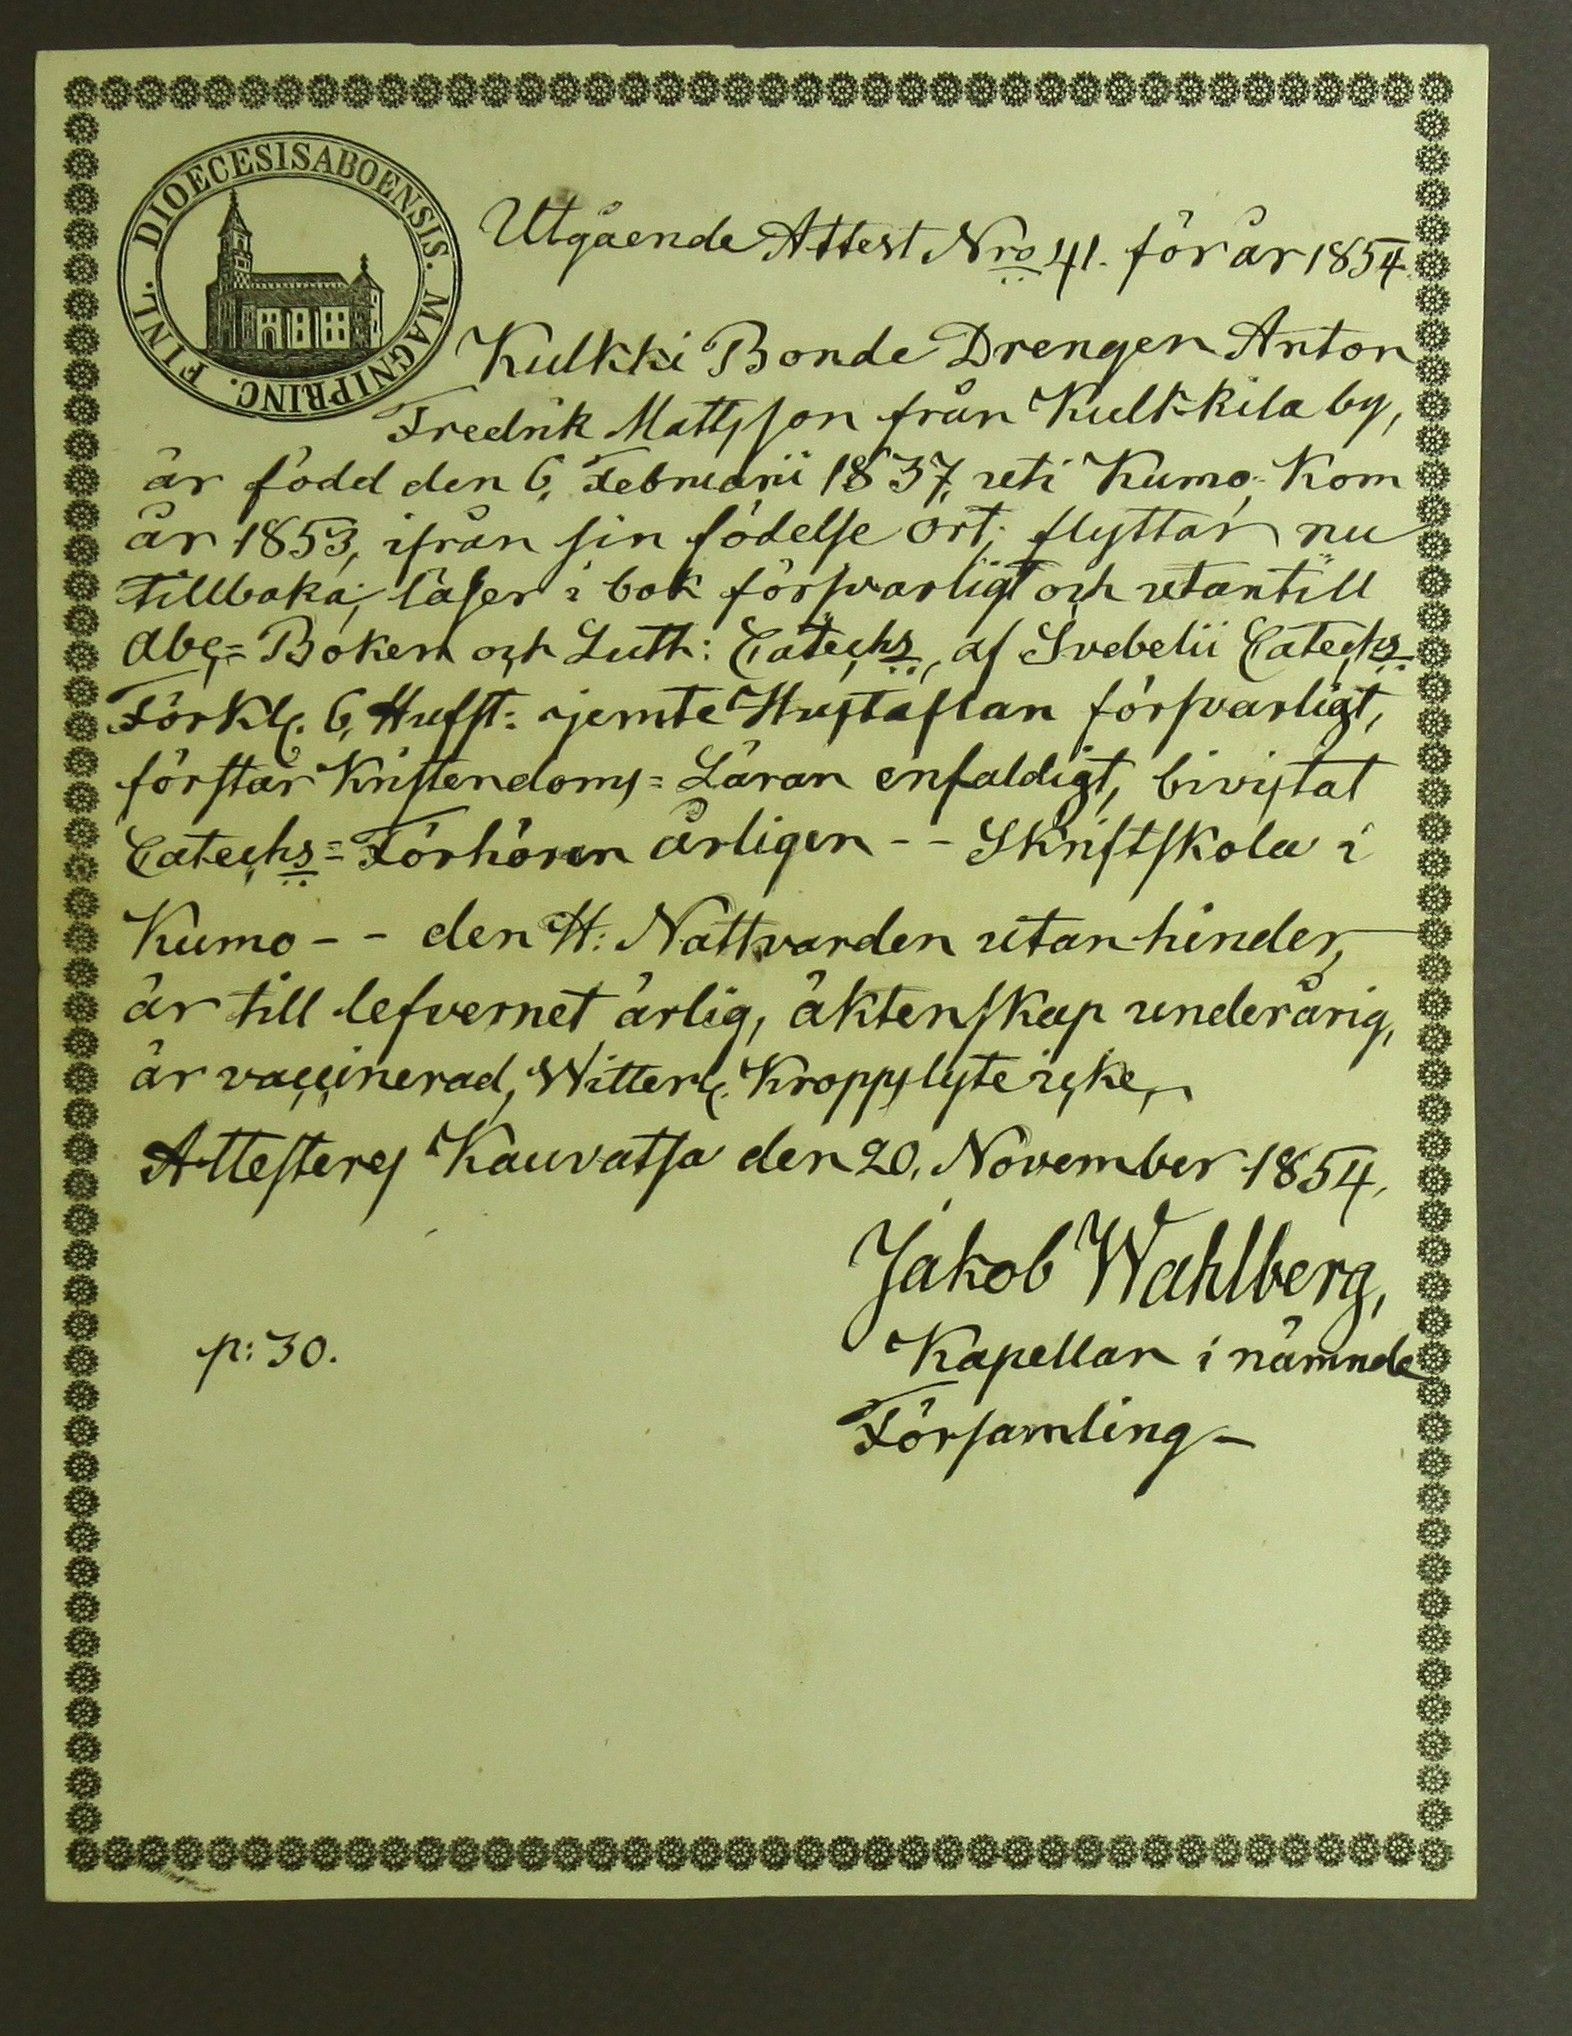 DIOECESIS ABOENSIS. MAGNI PRINC. FINL.
Utgående Attest Nro 41. för år 1854.
Kulkki Bonde Drengen Anton
Fredrik Mattsson från Kulkkila by,
är född den 6. Februarii 1837, uti Kumo; Kom
år 1853, ifrån sin födelse ort; flyttar nu
tillbaka; läser i bok försvarligt och utantill
Abc=Boken och Luth: Catechs, af Svebelii Catechs
Förkl. 6, Hufst: jemte Hustaflan försvarligt,
förstår Kristendoms=Läran enfaldigt, bivistat
Catechs=Förhören årligen -- Skriftskola i
Kumo -- den H: Nattvarden utan hinder,
är till lefvernet ärlig, äktenskap underårig,
är vaccinerad, Witterl. Kroppslyte icke,
Attesteres Kauvatsa den 20. November 1854.
Jakob Wahlberg,
p: 30.
Kapellan i nämnde
Församling